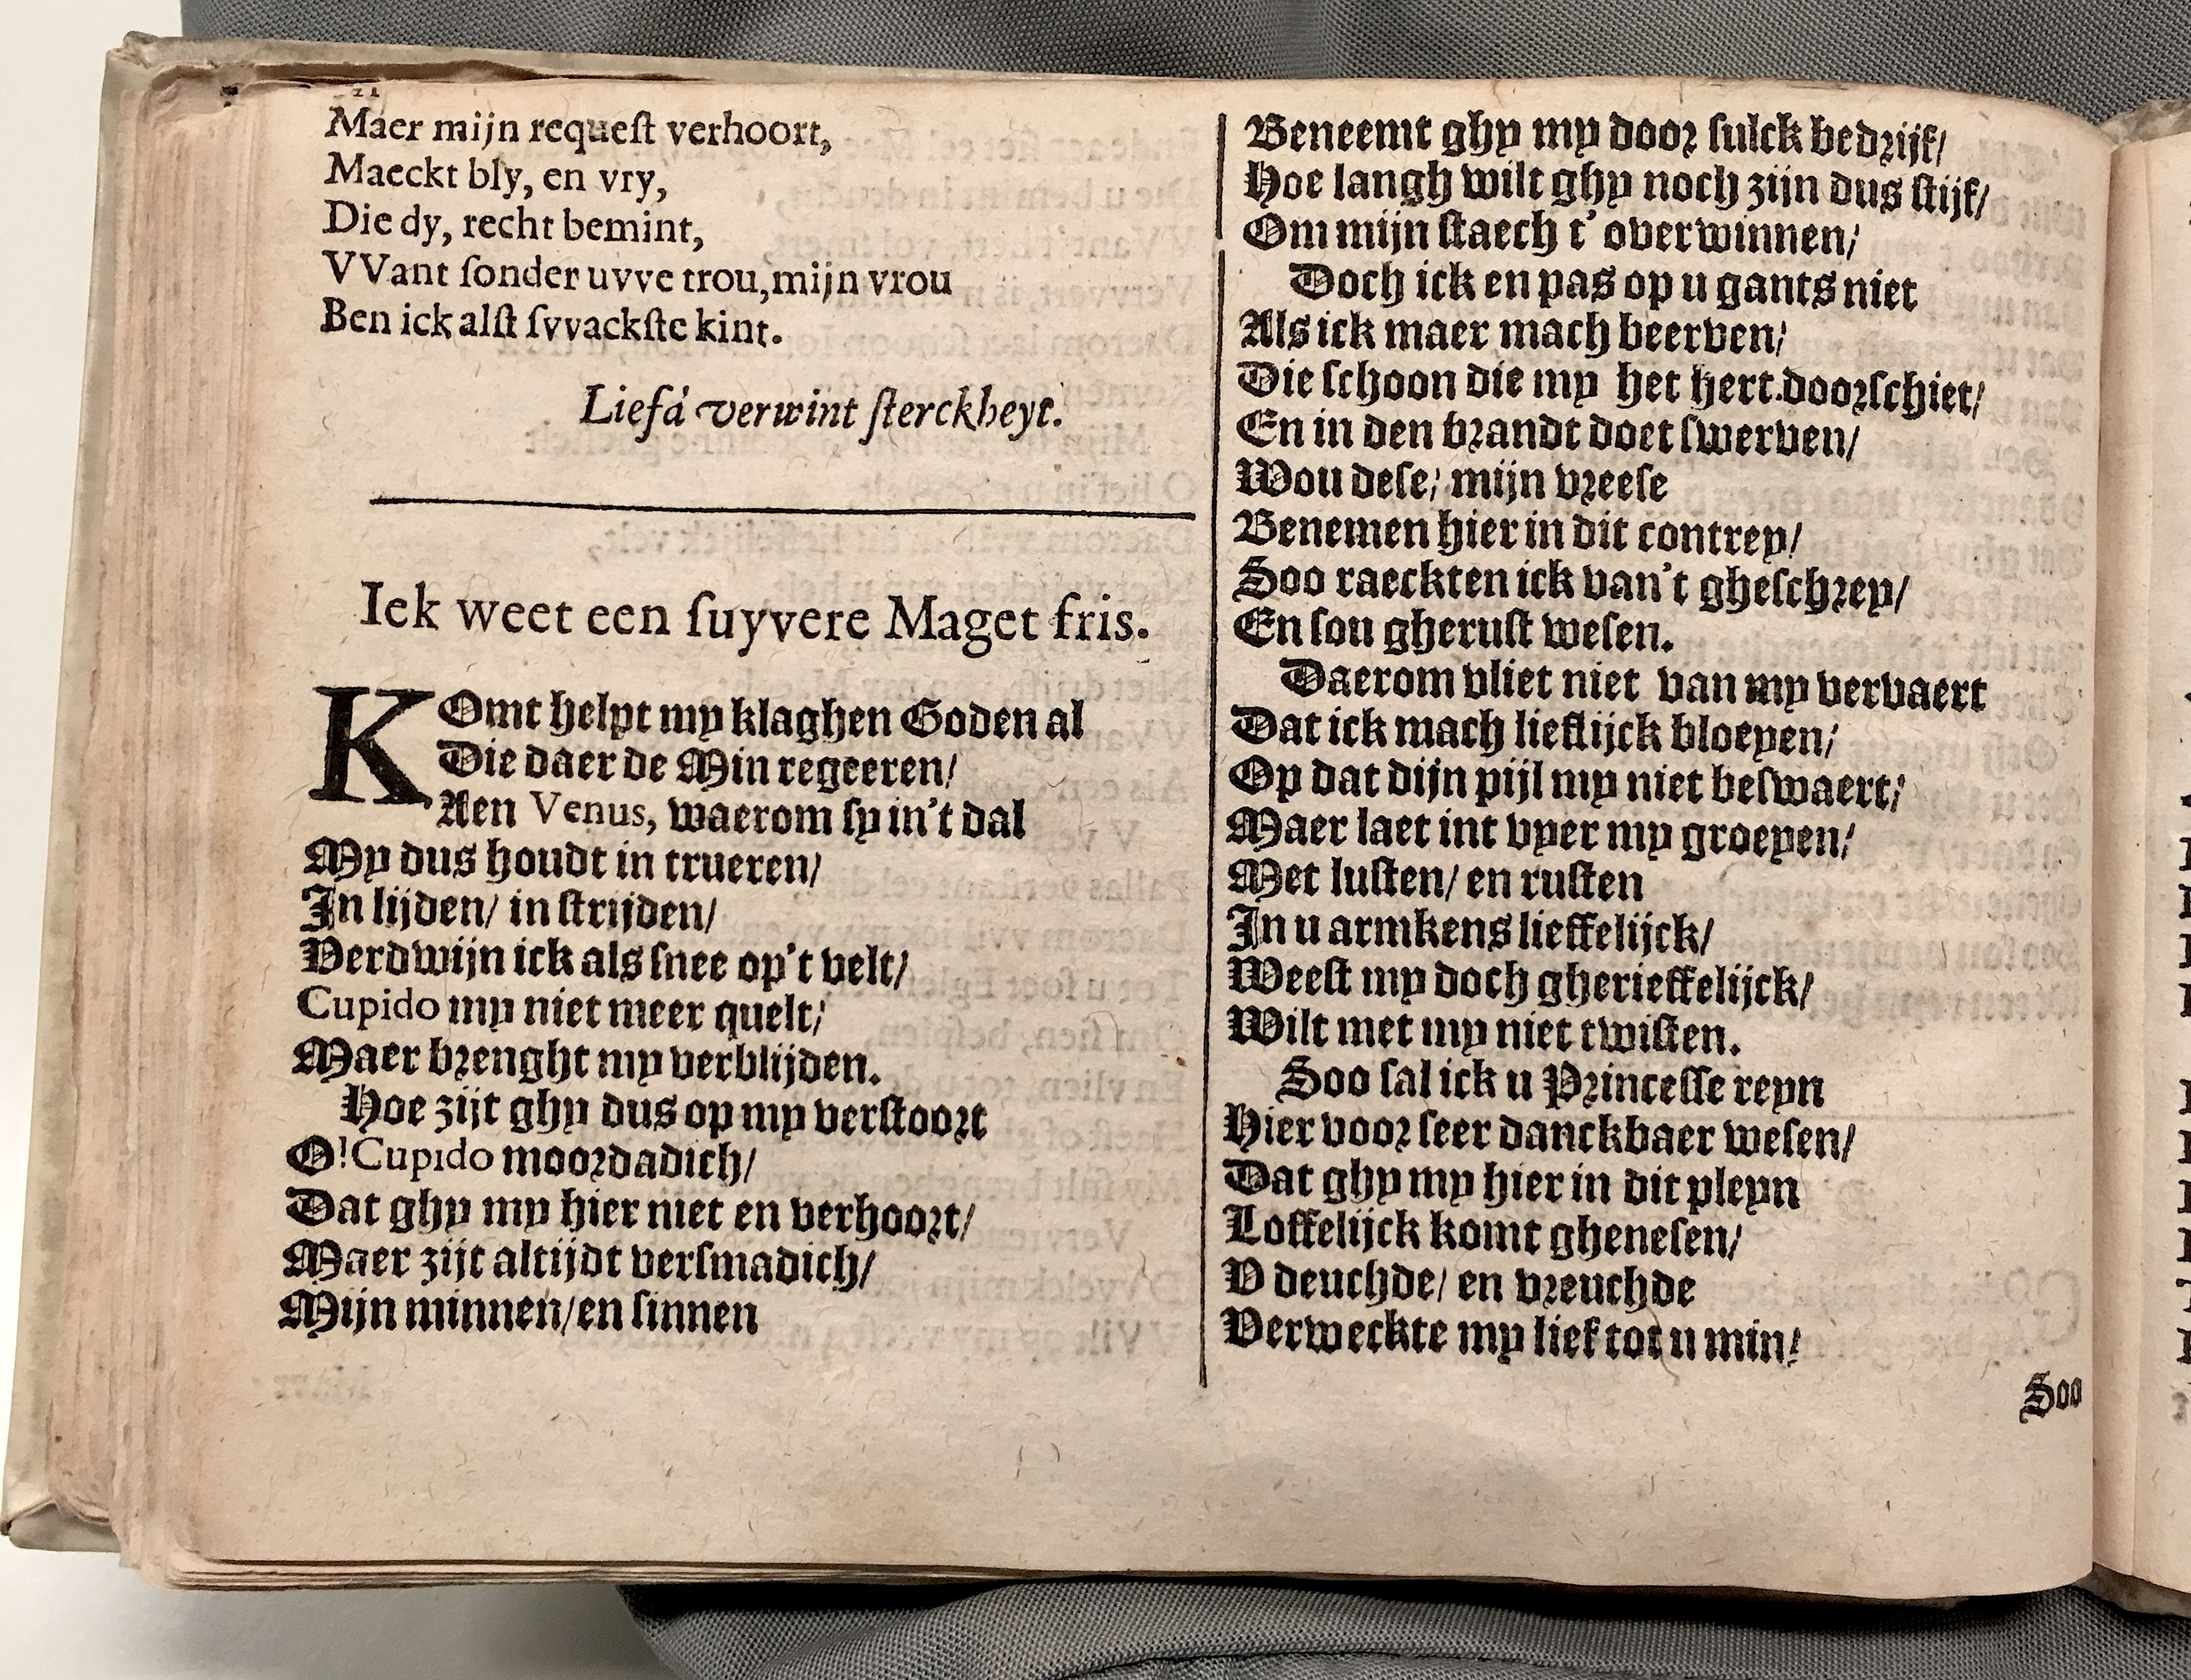 Maer mijn requeſt verhoort,
Maeckt bly, en vry,
Die dy, recht bemint,
VVant ſonder uvve trou, mijn vrou
Ben ick alſt ſvvackſte kint.
Liefd' verwint ſterckheyt.
Iek weet een ſuyvere Maget fris.
KOmt helpt my klaghen Goden al
Die daer de Min regeeren/
Aen Venus, waerom ſy in't dal
My dus houdt in trueren/
In lijden/ in ſtrijden/
Verdwijn ick als ſnee op't velt/
Cupido my niet meer quelt/
Maer brenght my verblijden.
Hoe zijt ghy dus op my verſtoort
O! Cupido moordadich/
Dat ghy my hier niet en verhoort/
Maer zijt altijdt verſmadich/
Mijn minnen/ en ſinnen
Beneemt ghy my door ſulck bedrijf/
Hoe langh wilt ghy noch zijn dus ſtijf/
Om mijn ſtaech t' overwinnen/
Doch ick en pas op u gants niet
Als ick maer mach beerven/
Die ſchoon die my het hert doorſchiet/
En in den brandt doet ſwerven/
Wou deſe/ mijn vreeſe
Benemen hier in dit contrey/
Soo raeckten ick van't gheſchrey/
En ſou gheruſt weſen.
Daerom vliet niet van my vervaert
Dat ick mach lieflijck bloeyen/
Op dat dijn pijl my niet beſwaert/
Maer laet int vyer my groeyen/
Met luſten/ en ruſten
In u armkens lieffelijck/
Weeſt my doch gherieffelijck/
Wilt met my niet twiſten.
Soo ſal ick u Princeſſe reyn
Hier voor ſeer danckbaer weſen/
Dat ghy my hier in dit pleyn
Loffelijck komt gheneſen/
V deuchde/ en vreuchde
Verweckte my lief tot u min/
Soo